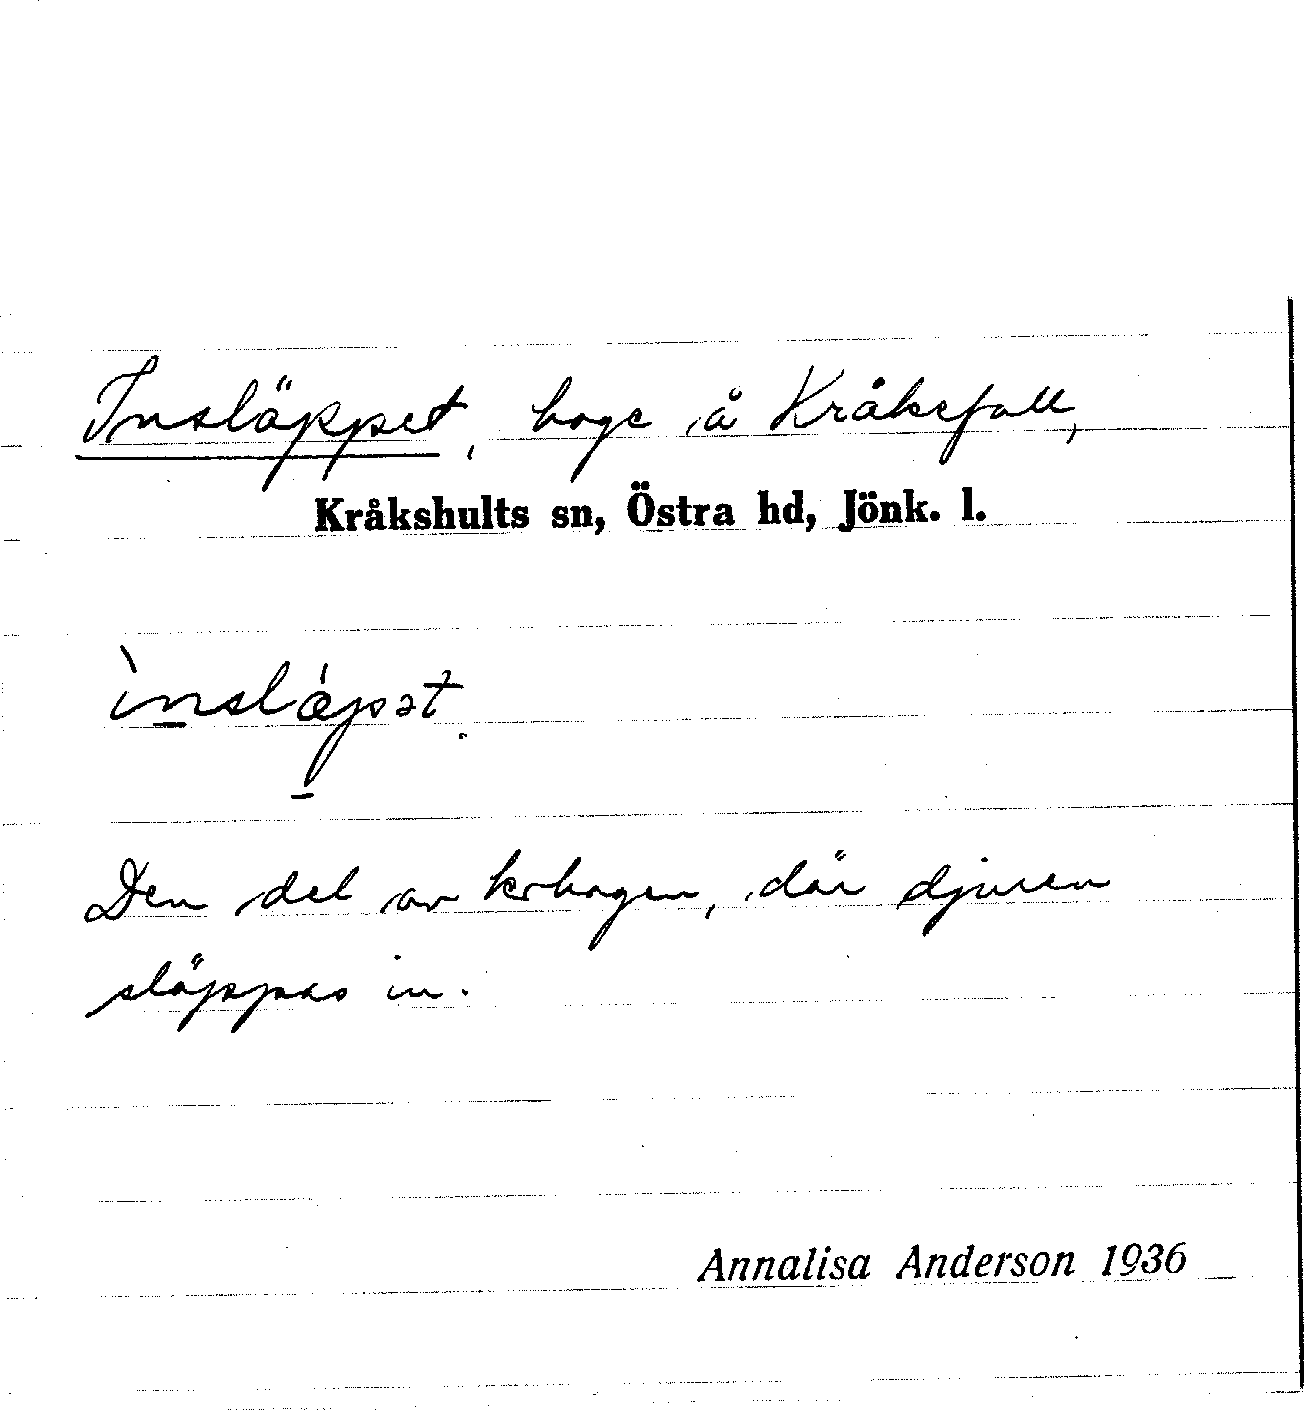 Insläppet, hage å Kråkefall,
Kråkshults sn, Östra hd, Jönk. l.
ìnslǽpət.
Den del av kohagen, där djuren
släppas in.
Annalisa Anderson 1936